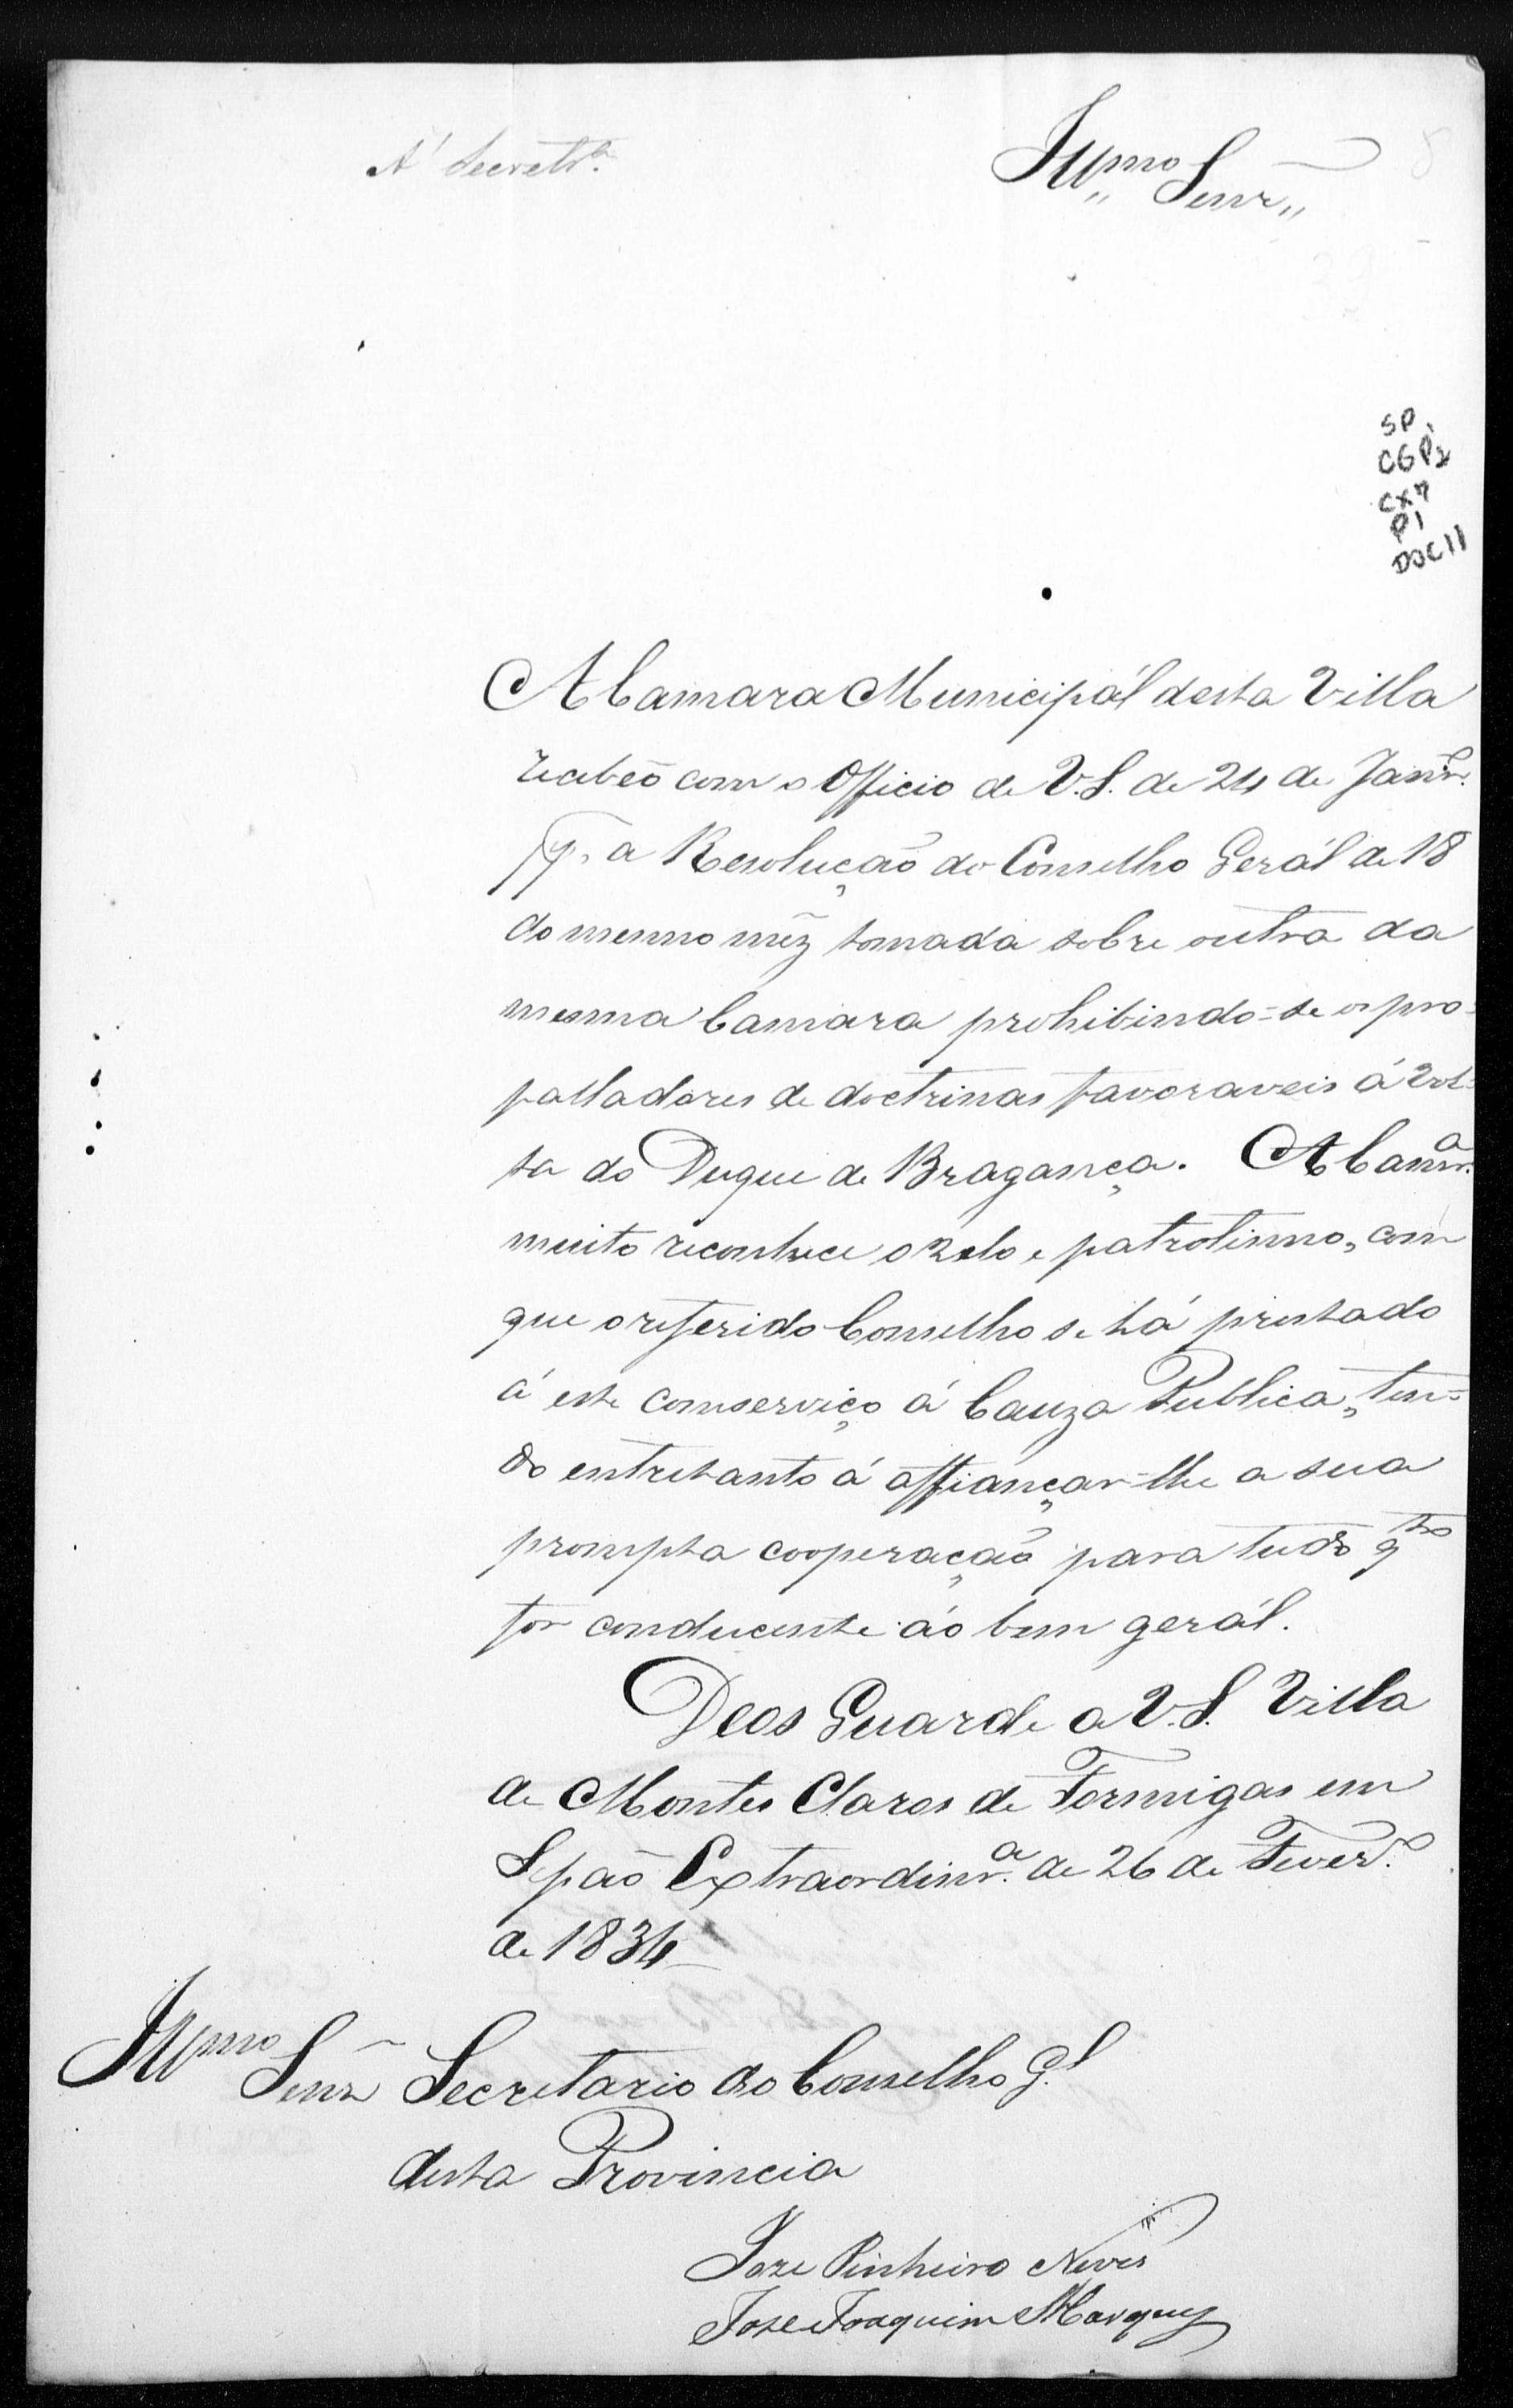 A' Secretr.ª
Ill.mo Senr.
SP
CGP2
CX7
P1
DOC11
A Camara Municipál desta Villa
recebeo com o Officio de V.S. de 24 de Janr.º
pp. a Resolução do Conselho Gerál de 18
do mesmo mêz tomada sobre outra da
mesma Camara prohibindo-se os pro-
palladores de doctrinas favoraveis á vol-
ta do Duque de Bragança. A Camr.ª
muito reconhece o zelo e patrotismo, com
que o referido Conselho se há prestado
á este com serviço á Cauza Publica, ten-
do entretanto á affiançar-lhe a sua
prompta cooperação para tudo q.to
for conducente áo bem gerál.
Deos Guarde a V.S. Villa
de Montes Claros de Formigas em
Sessão Extraordinr.ª de 26 de Fever.º
de 1834
Ill.mo Senr. Secretario do Conselho G.l
desta Provincia
Joze Pinheiro Neves
Jose Joaquim Marques